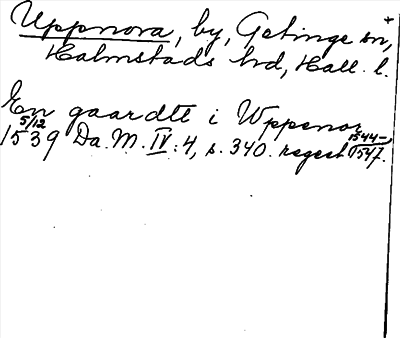 Uppnora, by, Getinge sn, +
Halmstads hd, Hall. l.
En gaardtt i Wppenor
5/12 1539 Da. M. IV: 4, s. 340. regest 1544–1547.